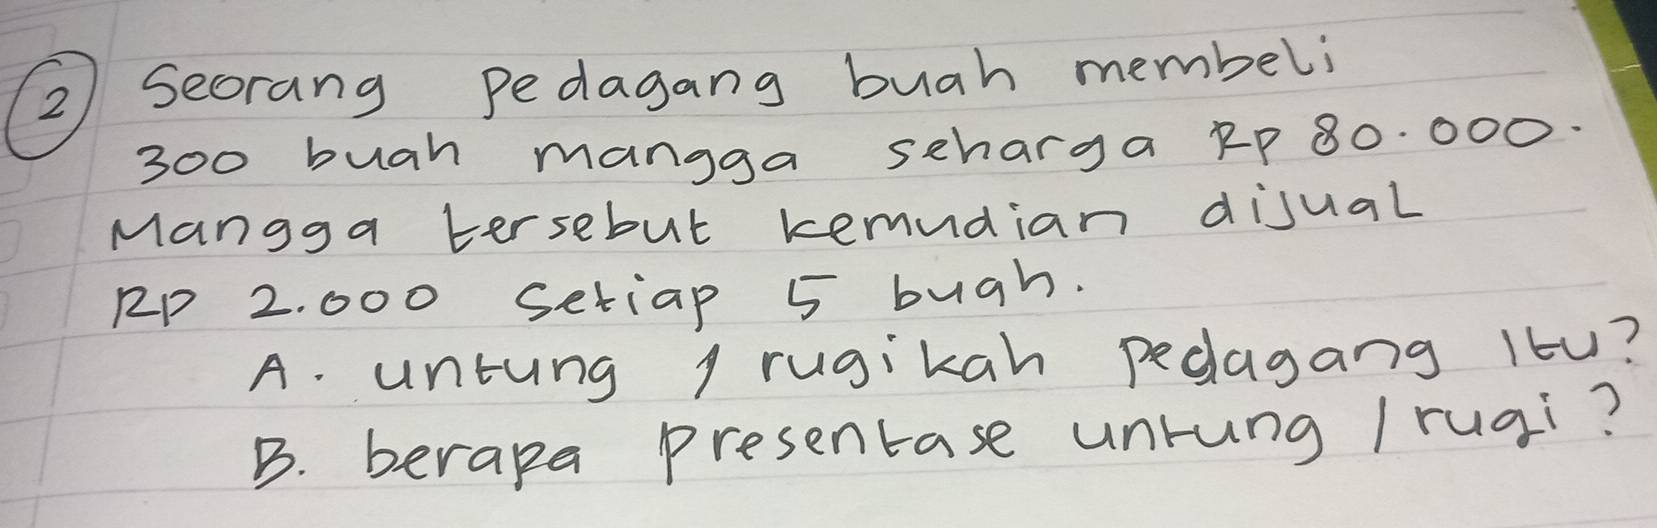 2 Seorang pedagang buah membeli
300 buah mangga seharga Rp 80.000.
Mangga tersebut kemudian dijual
Rp 2.000 setiap 5 buah.
A. untung / rugikah pedagang itu?
B. berapa presentase untung / rugi?